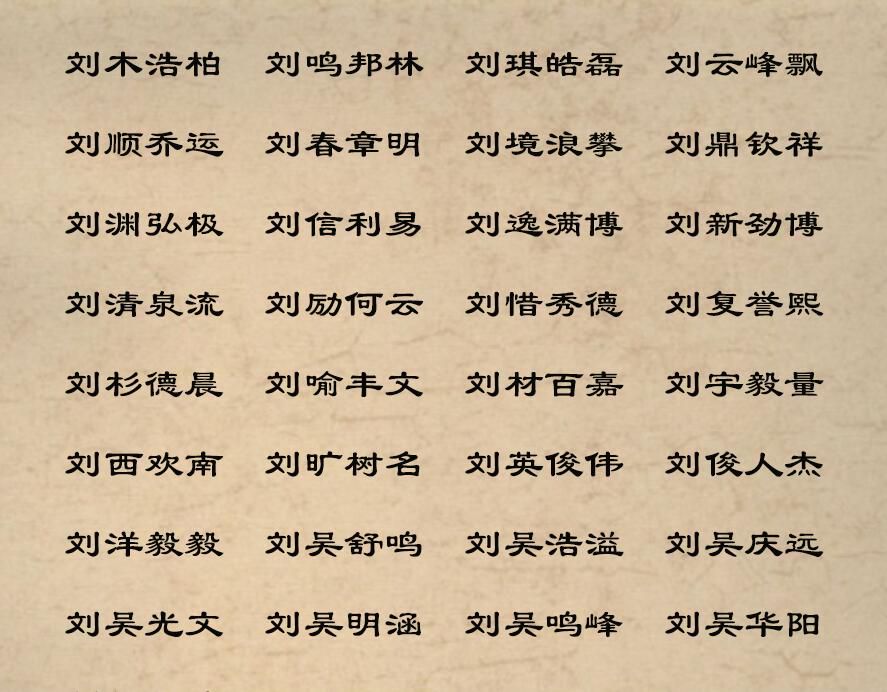 刘木浩柏 刘鸣邦林 刘琪皓磊 刘云峰飘
刘顺乔运 刘春章明 刘境浪攀 刘鼎钦祥
刘渊弘极 刘信利易 刘逸满博 刘新劲博
刘清泉流 刘励何云 刘惜秀德 刘复誉熙
刘杉德晨 刘喻丰文 刘材百嘉 刘宇毅量
刘西欢南 刘旷树名 刘英俊伟 刘俊人杰
刘洋毅毅 刘吴舒鸣 刘吴浩溢 刘吴庆远
刘吴光文 刘吴明涵 刘吴鸣峰 刘吴华阳